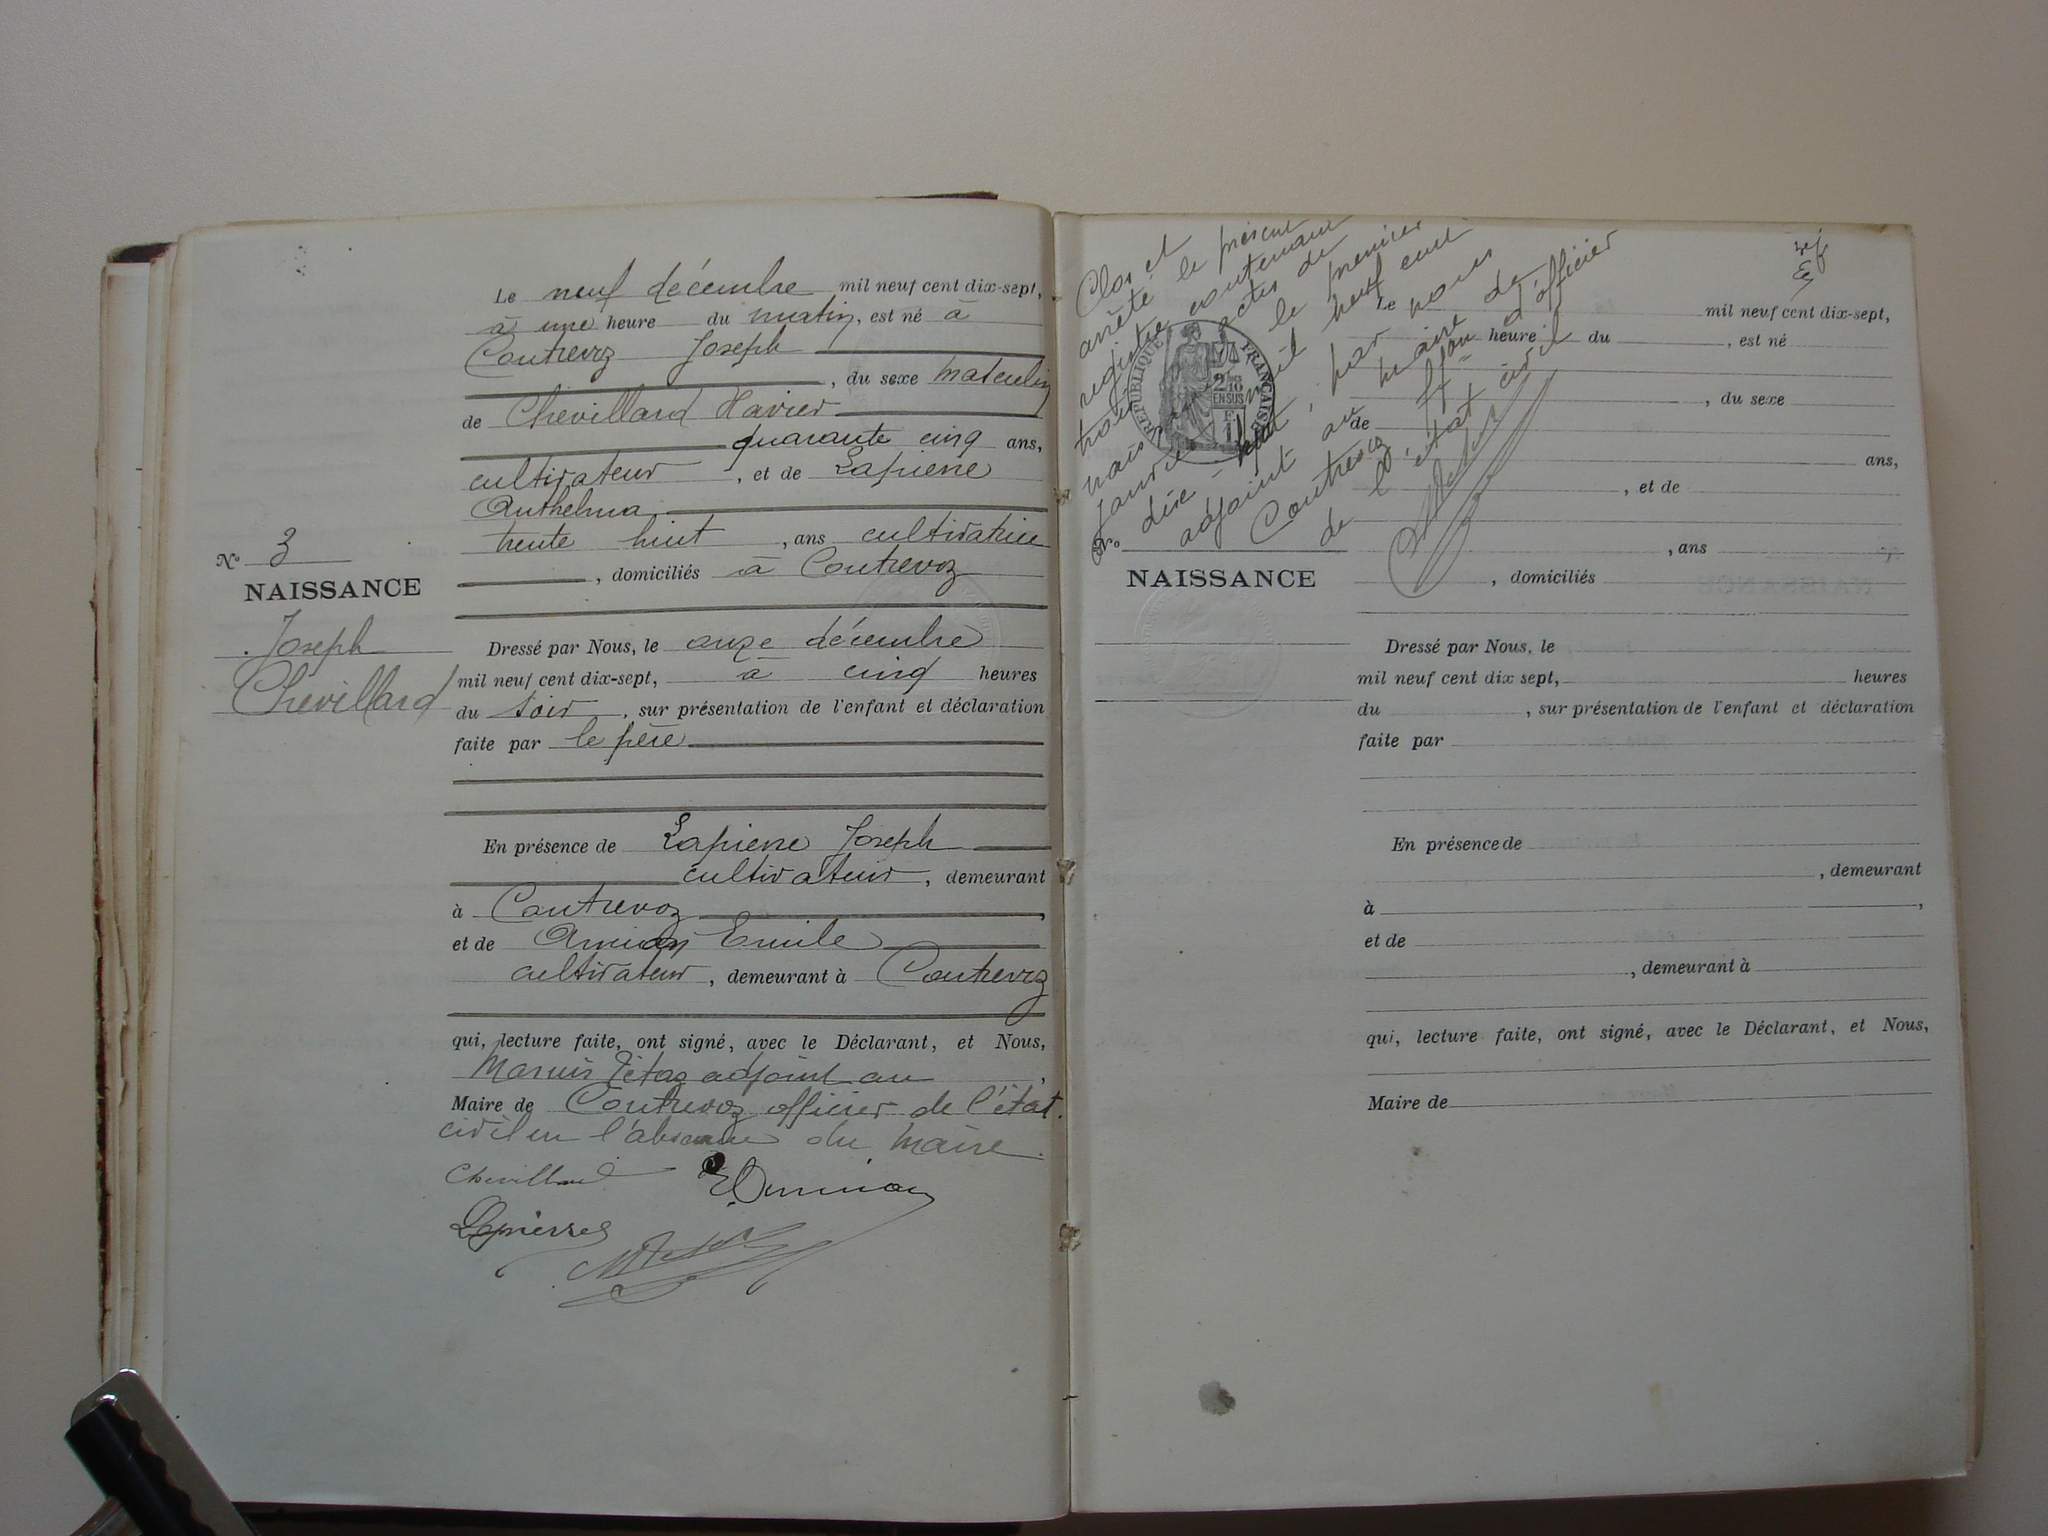 Le neuf décembre mil neuf cent dix-sept,
à une heure du matin, est né à
Contrevoz Joseph
, du sexe masculin
de Chevillard Xavier
quarante cinq ans,
cultivateur, et de Lapierre
Anthelma
trente huit, ans cultivatrice
, domiciliés à Contrevoz
N° 3
NAISSANCE
Joseph
Chevillard
Dressé par Nous, le onze décembre
mil neuf cent dix-sept, à cinq heures
du soir, sur présentation de l'enfant et déclaration
faite par le père
En présence de Lapierre Joseph
cultivateur, demeurant
à Contrevoz,
et de Emile
cultivateur, demeurant à Contrevoz
qui, lecture faite, ont signé, avec le Déclarant, et Nous,
Marius Tétaz adjoint au,
Maire de Contrevoz officier de l'état
civil en l'absence du Maire.
Chevillard
Lapierre
Clos et
arrêté le présent
registre contenant
trois actes de
naiss le premier
janvier mil neuf cent
dix-huit, par nous
adjoint au maire de
Contrevoz ffon d'officier
de l'état civil
RÉPUBLIQUE FRANÇAISE
2/10
EN SUS
1F
Le mil neuf cent dix-sept,
heure du, est né
, du sexe
de
ans,
, et de
, ans
, domiciliés
N°
NAISSANCE
Dressé par Nous, le
mil neuf cent dix sept, heures
du, sur présentation de l'enfant et déclaration
faite par
En présence de
, demeurant
à,
et de
, demeurant à
qui, lecture faite, ont signé, avec le Déclarant, et Nous,
Maire de